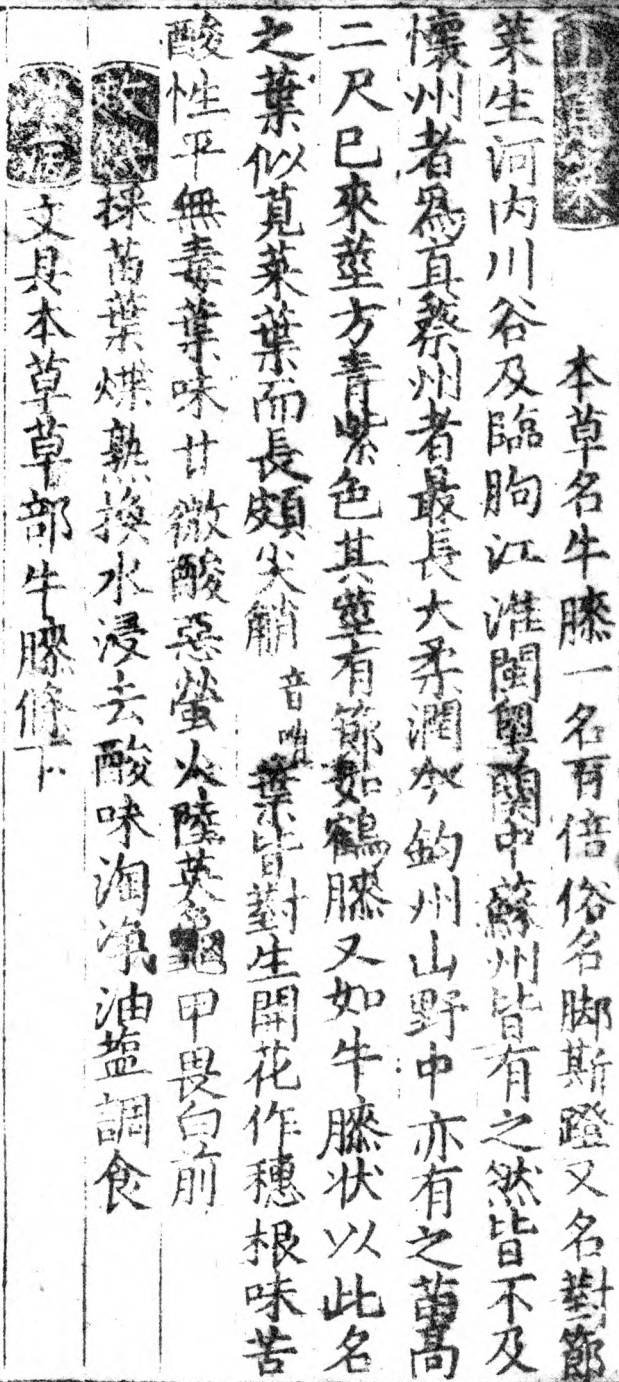 山莧菜 本草名牛膝一名百倍俗名脚斯蹬又名對節
菜生河内川谷及臨朐江淮閩粤關中蘇州皆有之然皆不及
懷州者爲真蔡州者最長大柔潤今鈞州山野中亦有之苗高
二尺已來莖方青紫色其莖有節如鶴膝又如牛膝狀以此名
之葉似莧菜葉而長頗尖艄音哨葉皆對生開花作穗根味苦
酸性平無毒葉味甘微酸惡螢火陸英龜甲畏白前
救飢採苗葉煠熟換水浸去酸味淘净油塩調食
治病文具本草草部牛膝條下